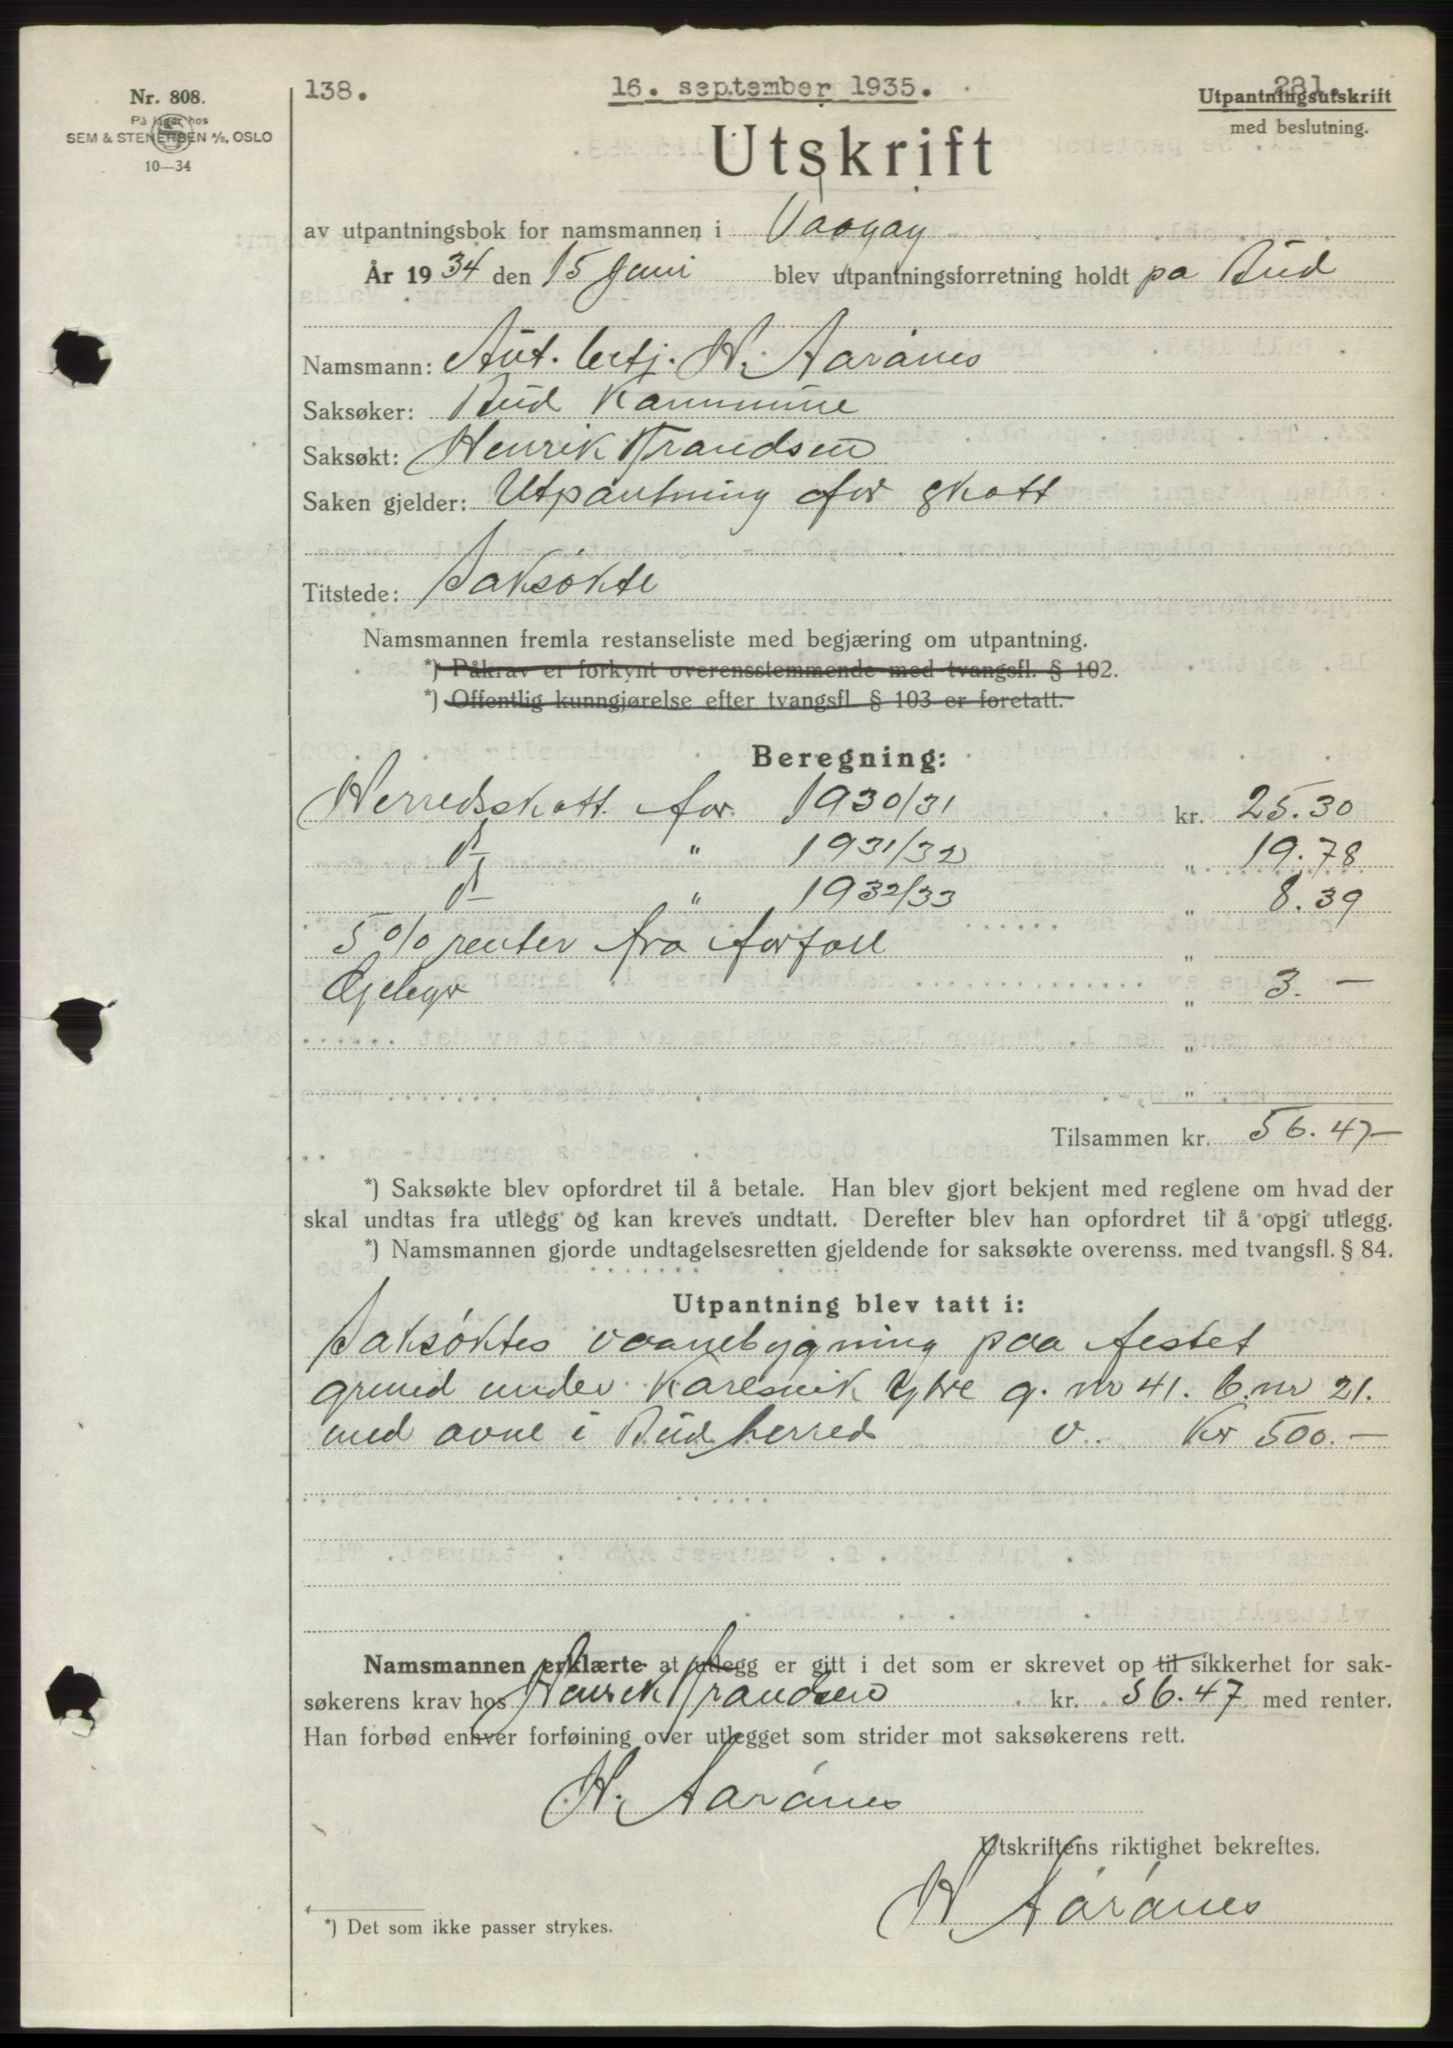 138.
16. september 1935.
281.
Nr. 808.
På lager hos
SEM & STENERSEN A/S, OSLO
10—34
Utpantningsutskrift
med beslutning.
Utskrift
av utpantningsbok for namsmannen i
År 1934 den 15 Juni blev utpantningsforretning holdt pa Bud
Namsmann: Aut. betj. H. Aarønes
Saksøker: Bud Kommune
Saksøkt: Henrik Frandsen
Saken gjelder: Utpantning for skatt
Titstede: Saksøkte
Namsmannen fremla restanseliste med begjæring om utpantning.
*) Påkrav er forkynt overensstemmende med tvangsfl. § 102.
*) Offentlig kunngjørelse efter tvangsfl. § 103 er foretatt.
Beregning:
Herredsskatt for 1930/31 kr. 25.30
" 1931/32 " 19.78
" 1932/33 " 8.39
5% renter fra forfall "
Gebyr " 3.—
"
"
Tilsammen kr. 56.47—
*) Saksøkte blev opfordret til å betale. Han blev gjort bekjent med reglene om hvad der
skal undtas fra utlegg og kan kreves undtatt. Derefter blev han opfordret til å opgi utlegg.
*) Namsmannen gjorde undtagelsesretten gjeldende for saksøkte overenss. med tvangsfl. § 84.
Utpantning blev tatt i:
Saksøktes vaanebygning paa festet
grund under Karesvik Ytre g. nr 41. b. nr 21.
med ovne i Bud herred v. Kr 500.—
Namsmannen erklærte at utlegg er gitt i det som er skrevet op til sikkerhet for sak-
søkerens krav hos Henrik Frandsen kr. 56.47 med renter.
Han forbød enhver forføining over utlegget som strider mot saksøkerens rett.
H. Aarønes
Utskriftens riktighet bekreftes.
H Aarønes
*) Det som ikke passer strykes.